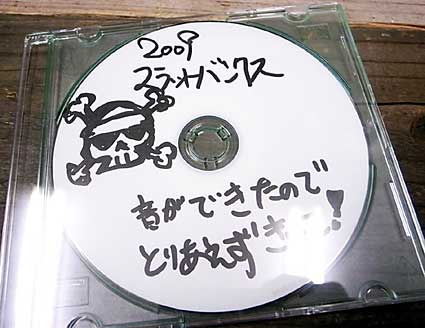 2009
スラットバンクス
音ができたので
とりあえず